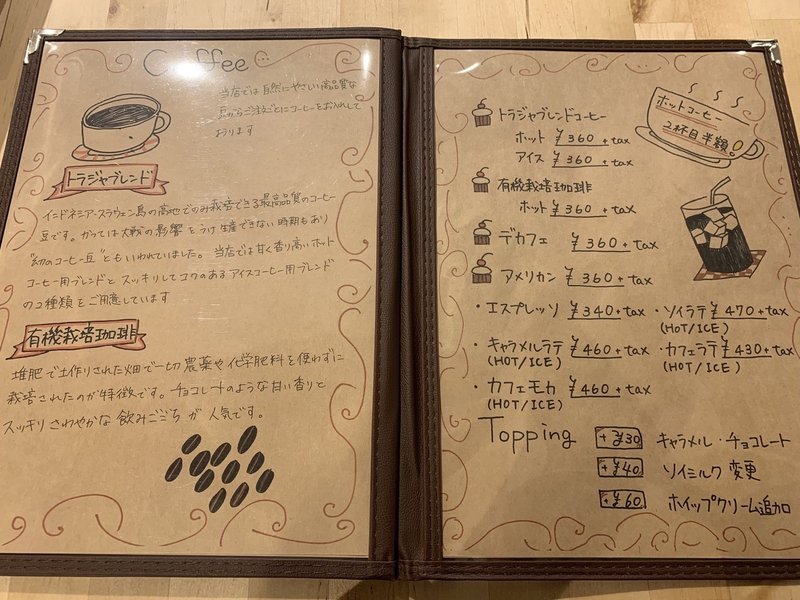 Coffee
当店では自然にやさしい高品質な
豆からご注文ごとにコーヒーをお入れして
おります
トラジャブレンド
インドネシア・スラウェシ島の高地でのみ栽培できる最高品質のコーヒー
豆です。かつては大戦の影響をうけ生産できない時期もあり
"幻のコーヒー豆"ともいわれていました。当店では甘く香り高いホット
コーヒー用ブレンドとスッキリしてコクのあるアイスコーヒー用ブレンド
の2種類をご用意しています
有機栽培珈琲
堆肥で土作りされた畑で一切農薬や化学肥料を使わずに
栽培されたのが特徴です。チョコレートのような甘い香りと
スッキリさわやかな飲みごこちが人気です。
ホットコーヒー
2杯目半額!
トラジャブレンドコーヒー
ホット ¥360+tax
アイス ¥360+tax
有機栽培珈琲
ホット ¥360+tax
デカフェ ¥360+tax
アメリカン ¥360+tax
・エスプレッソ ¥340+tax
・ソイラテ ¥470+tax
(HOT/ICE)
・キャラメルラテ ¥460+tax
(HOT/ICE)
・カフェラテ ¥430+tax
(HOT/ICE)
・カフェモカ ¥460+tax
(HOT/ICE)
Topping
+¥30 キャラメル・チョコレート
+¥40 ソイミルク変更
+¥60 ホイップクリーム追加